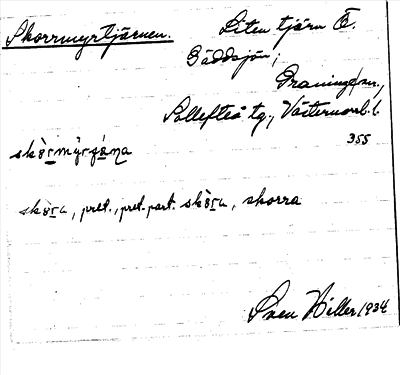 Skorrmyrtjärnen.
Liten tjärn Ö.
Gäddsjön;
Graninge sn.,
Sollefteå tg., Västernorrl. l.
355
skòr̲mỳrɟá̲n̲a
skòr̲a, pret., pret. part. skòr̲a, skorra
Sven Hiller 1934